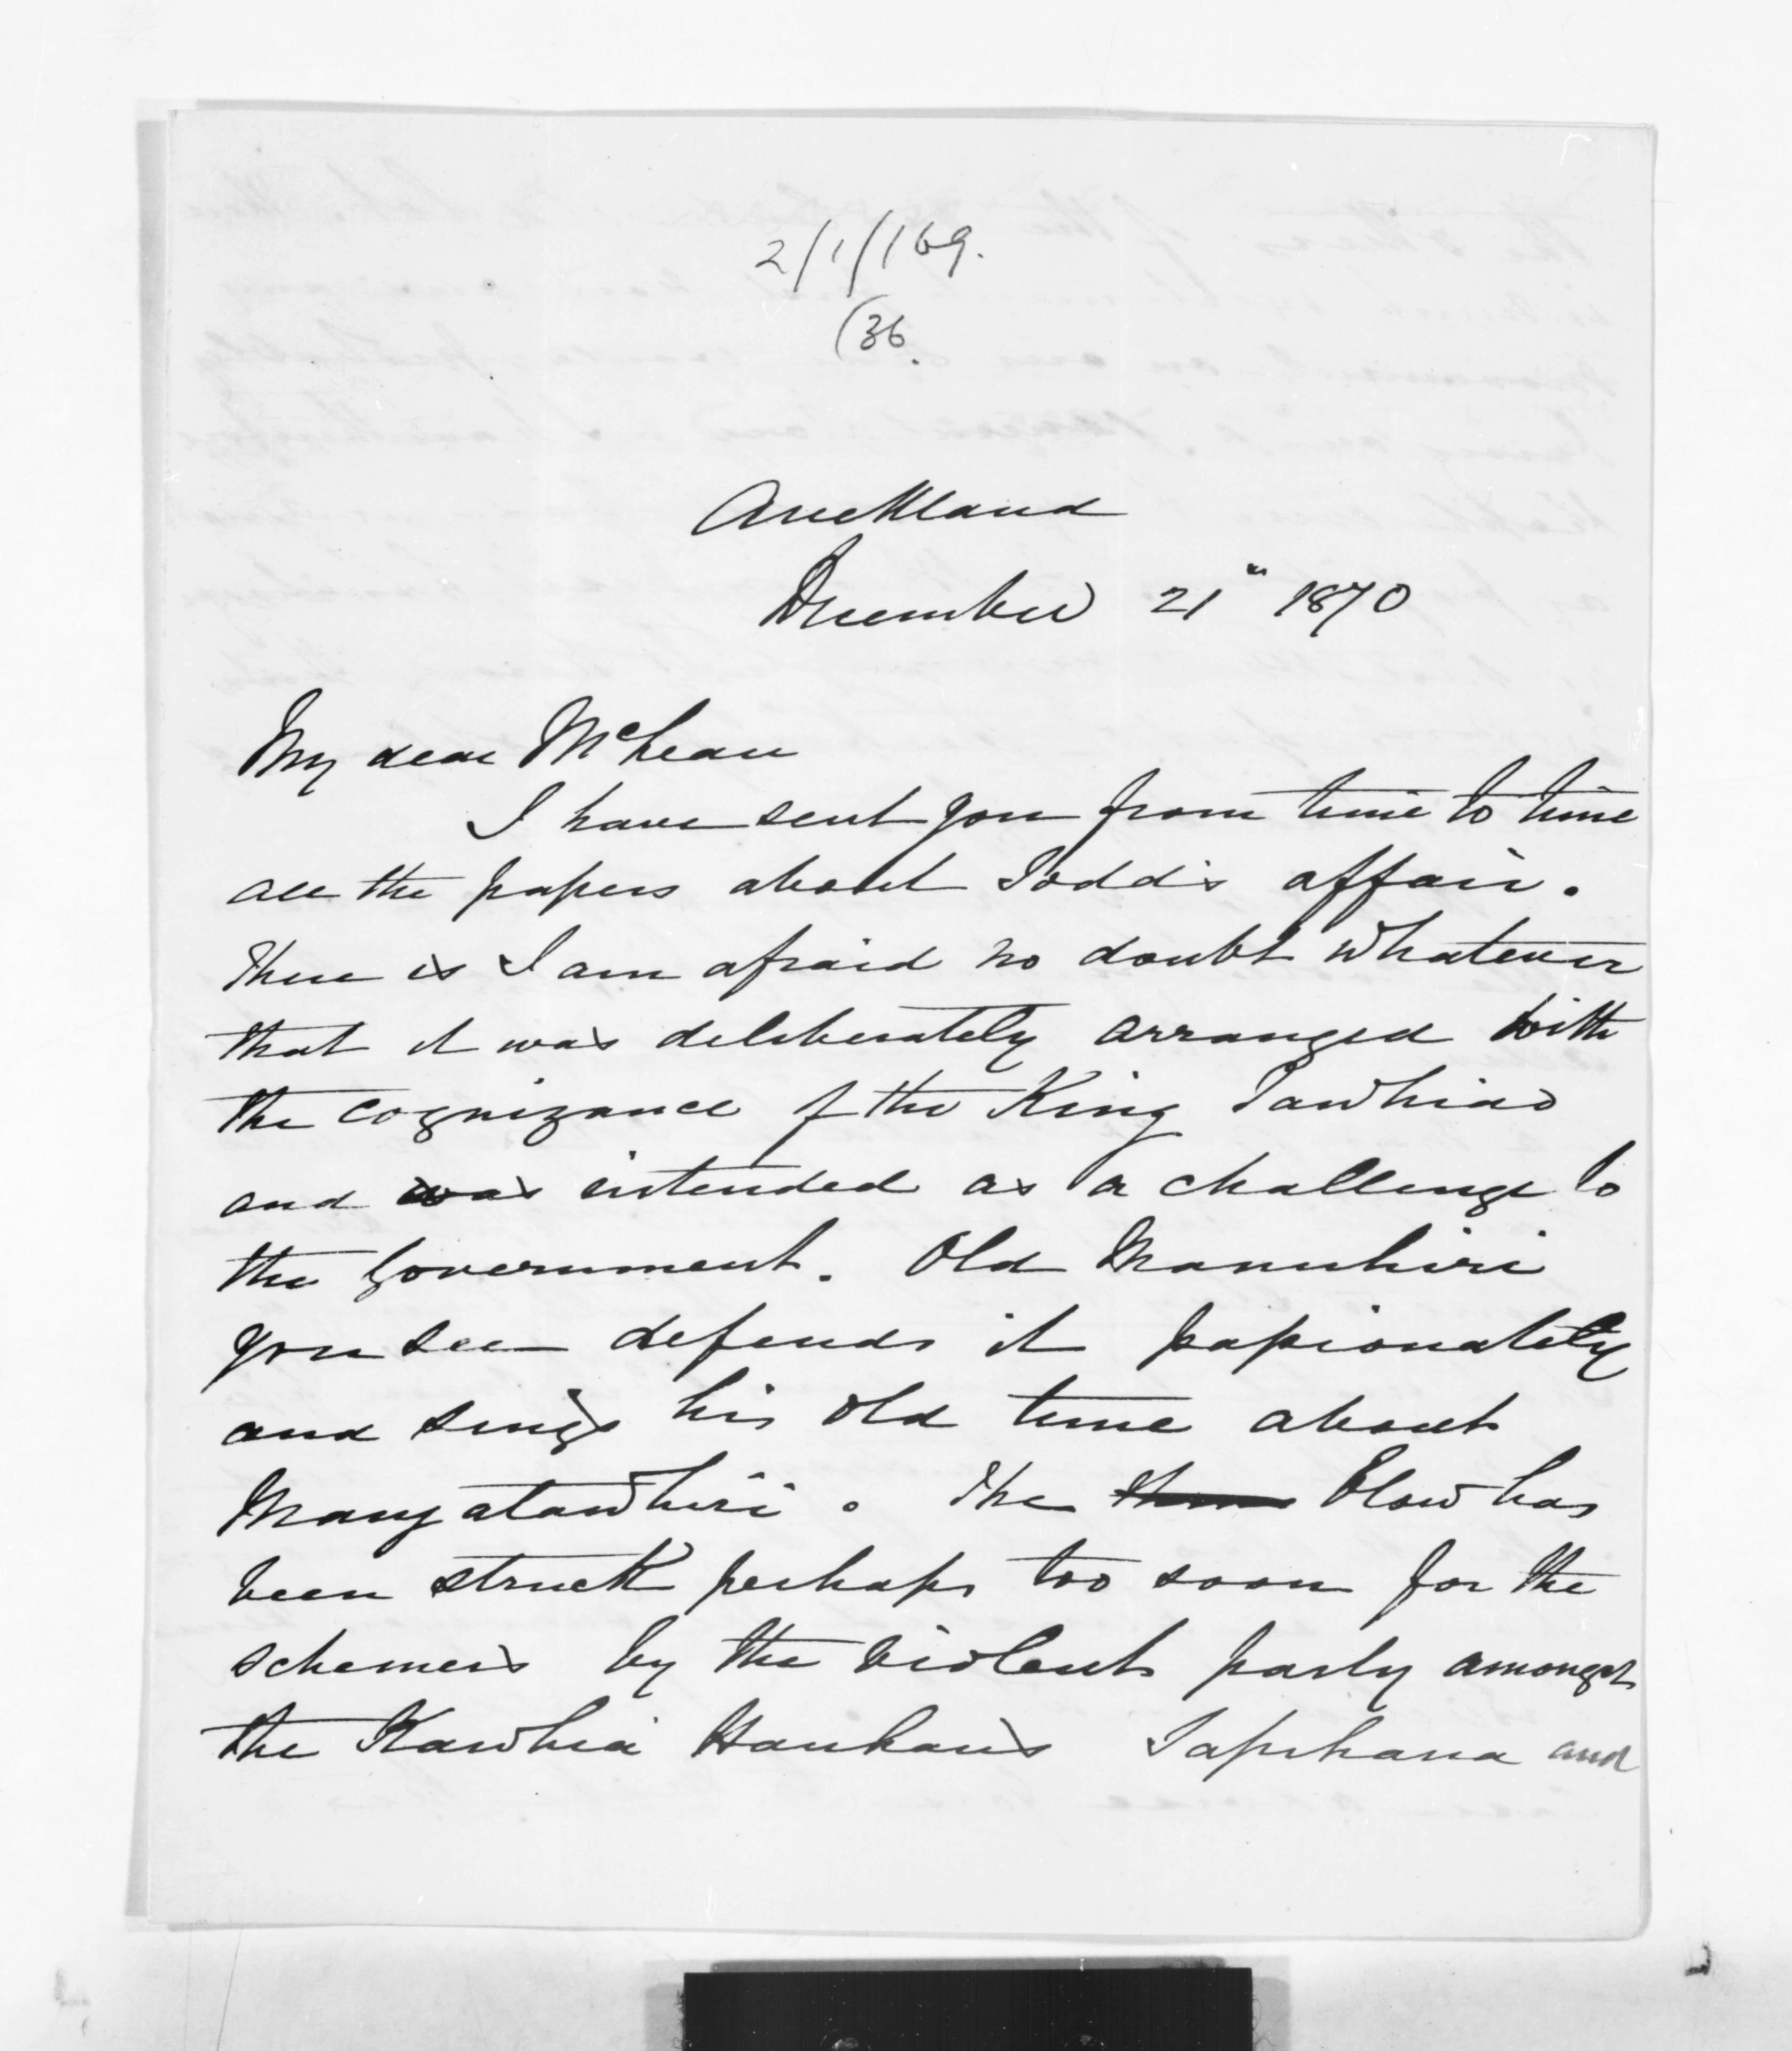 2/1/169.
(36.
Auckland
December 21st 1870
My dear McLean
I have sent you from time to time
all the papers about Todd's affair.
There is I am afraid no doubt whatever
that it was deliberately arranged with
the cognizance of the King Tawhiao
and was intended as a challenge to
the Government. Old Manuhiri
you see defends it passionately
and sings his old tune about
Mangatawhiri. The blow has
been struck perhaps too soon for the
schemers by the violent party amongst
the Kawhia Hauhaus Tapihana and